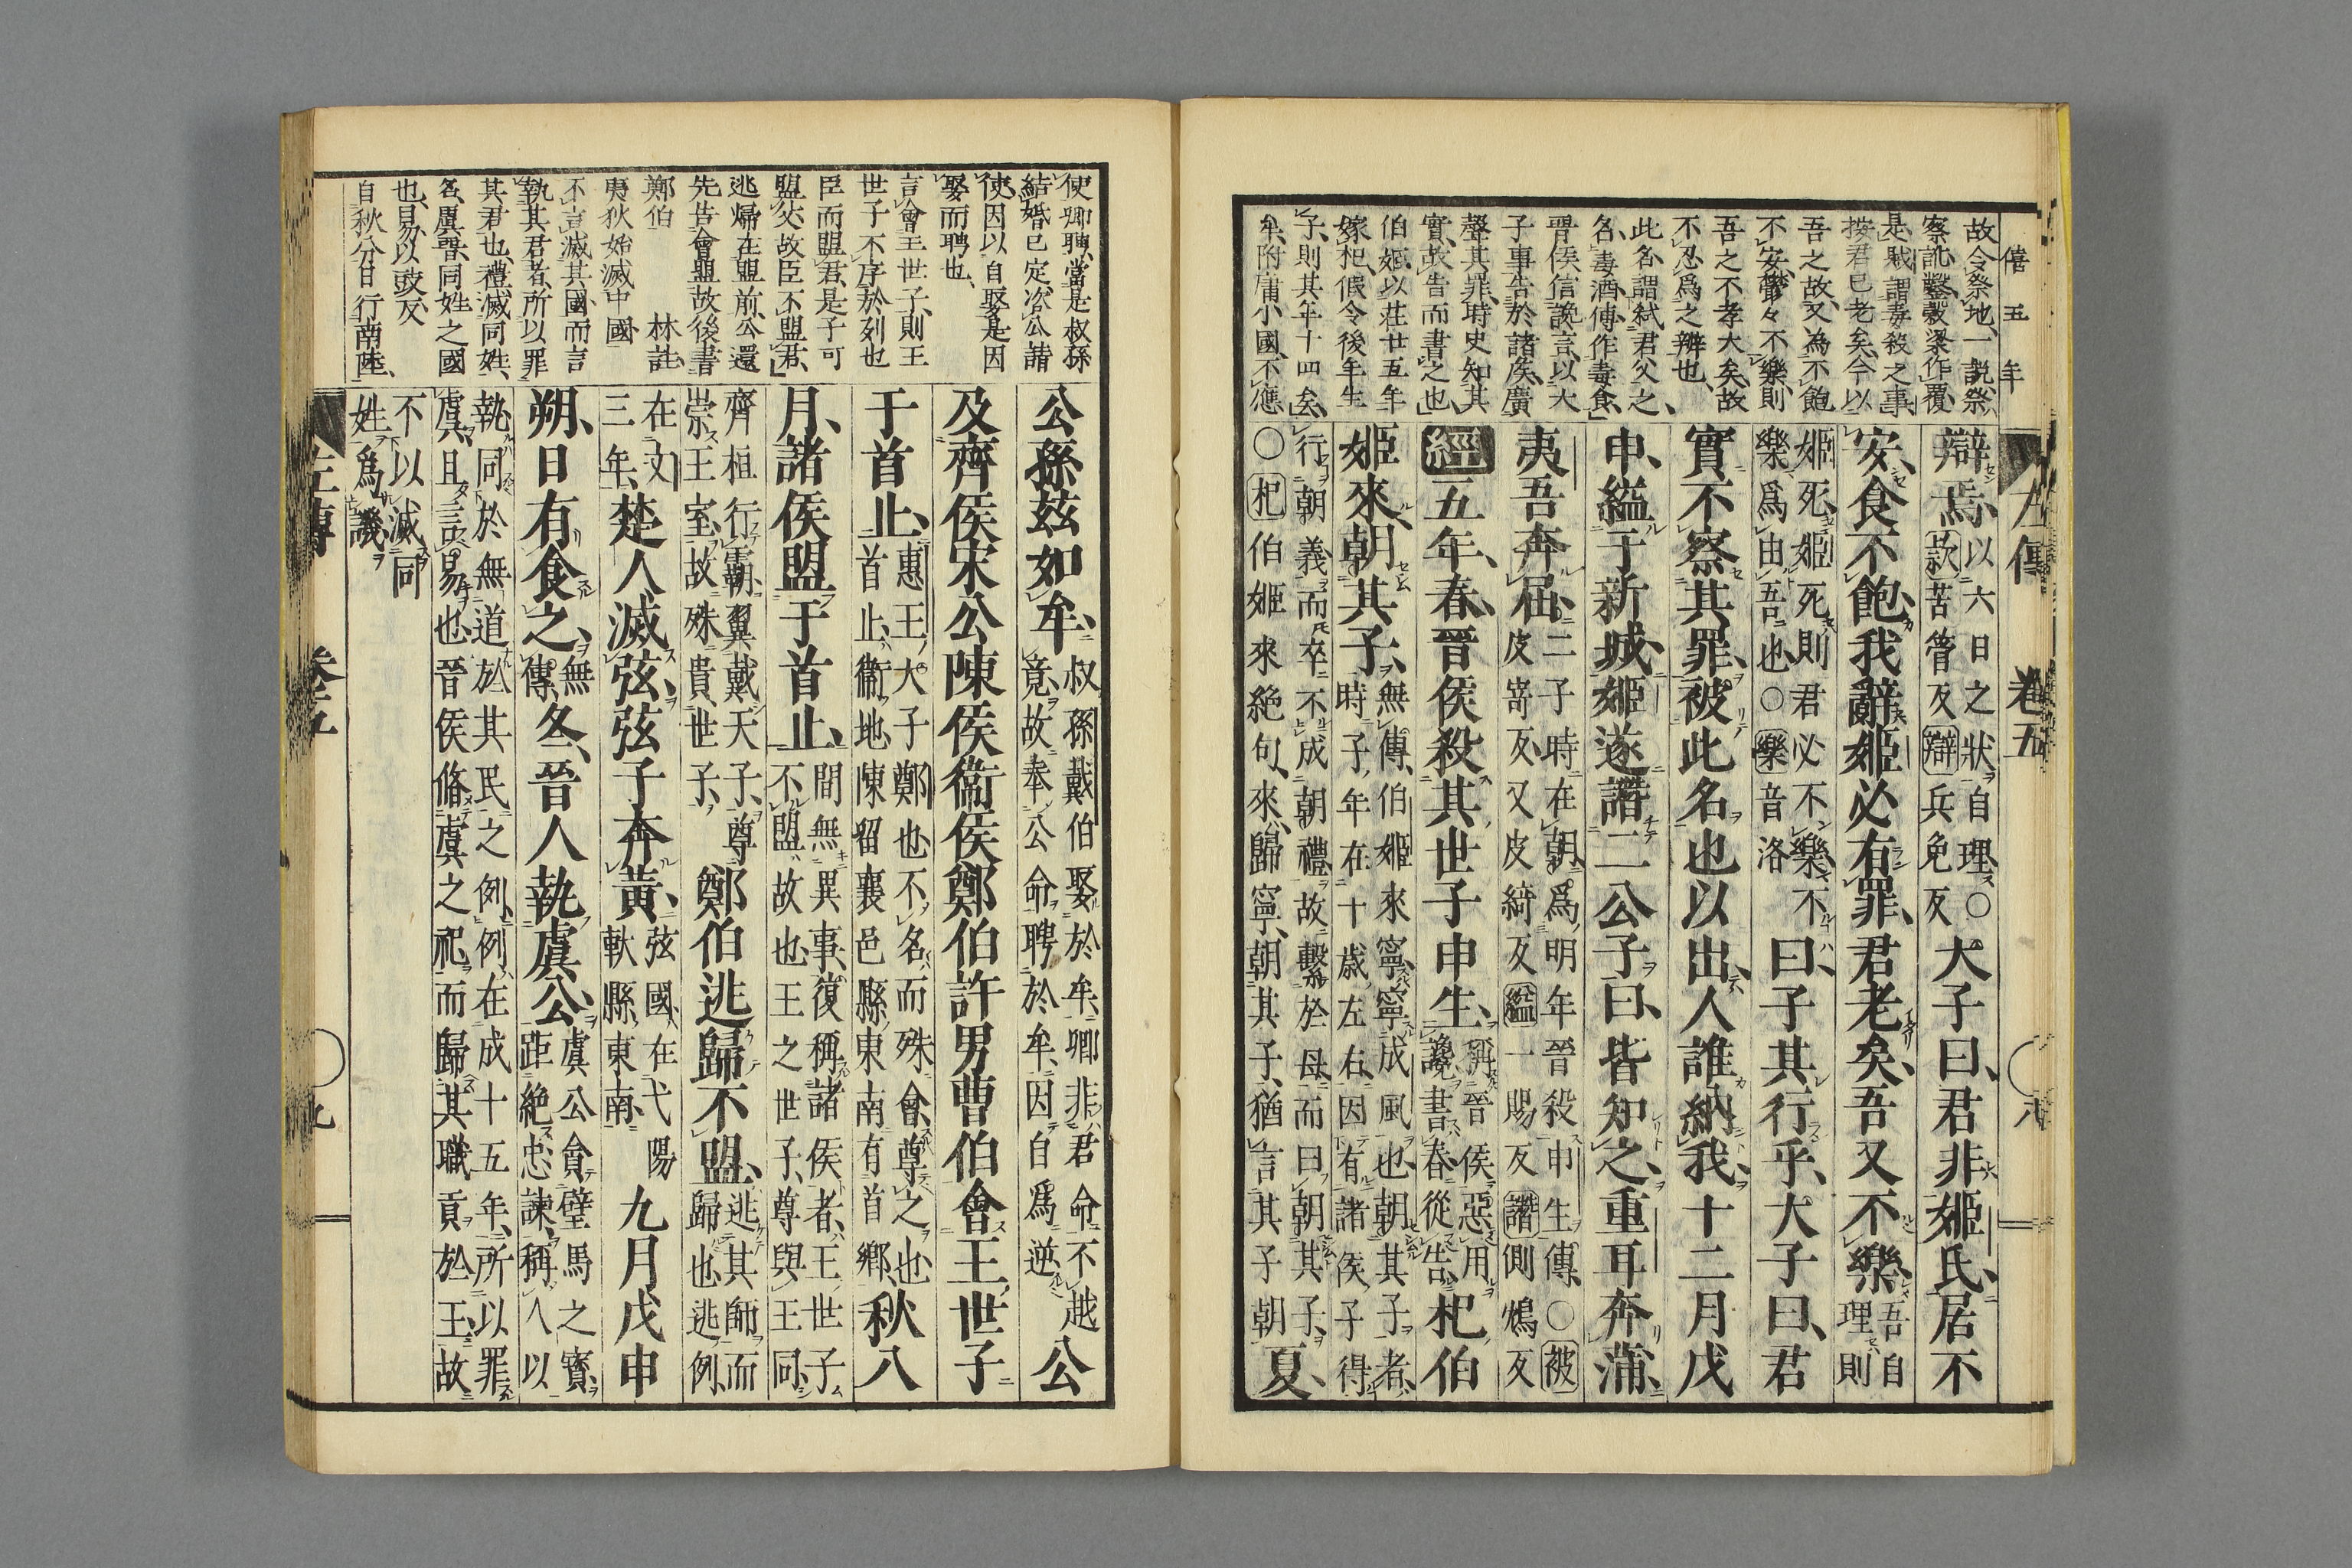 僖五年
故令祭地、一説祭
察訛、鑿穀梁作覆
是、賊謂毒殺之事
按君已老矣、今以
吾之故、又為不飽
不安、鬱々不樂、則
吾之不孝大矣、故
不忍為之辨也、
此名、謂弑君父之
名、毒酒、傳作毒食、
晉侯信讒言、以大
子事告於諸侯、廣
聲其罪、時史知其
實、故告而書之也、
伯姬以莊廿五年
嫁杞、假令後年生
子、則其年十四矣、
牟、附庸小國、不應
左傳 卷五 八
辯焉、以六日之狀自理○
款苦管反辯兵免反
大子曰、君非姬氏、居不
安、食不飽、我辭、姬必有罪、君老矣、吾又不樂、吾自
理則
姬死、姬死則君必不樂、不
樂、爲由吾也○樂音洛
曰、子其行乎、大子曰、君
實不察其罪、被此名也以出、人誰納我、十二月戊
申、縊于新城、姬遂譖二公子曰、皆知之、重耳奔蒲、
夷吾奔屈、二子時在朝、爲明年晉殺申生傳、○被
皮寄反、又皮綺反縊一賜反譖側鴆反
經五年、春、晉侯殺其世子申生、稱晉侯、惡用
讒、書春、從告、
杞伯
姬來朝其子、無傳、伯姬來寧、寧成風也、朝其子者、
時子年在十歲左右、因有諸侯子得
行朝義、而卒不成朝禮、故繫於母、而曰朝其子、
○杞伯姬來絶句、來、歸寧、朝其子、猶言其子朝
夏、
使卿聘、當是叔孫
結婚已定、洛公請
使因以自娶、是因
娶而聘也、
言會王世子、則王
世子不序於列也
臣而盟君、是子可
盟父、故臣不盟君、
逃歸在盟前、公還
先告會盟、故後書
鄭伯 林註
夷狄始滅中國
不言滅其國、而言
執其君者、所以罪
其君也、禮滅同姓、
名、虞晉同姓之國
也、易、以豉反、
自秋分日行南陸、
公孫茲如牟、叔孫戴伯娶於牟、卿非君命不越
竟、故奉公命聘於牟、因自爲逆、
公
及齊侯宋公陳侯衞侯鄭伯許男曹伯會王世子
于首止、惠王大子鄭也、不名而殊會、尊之也、
首止、衞地、陳留襄邑縣東南有首鄉、
秋八
月、諸侯盟于首止、間無異事、復稱諸侯者、王世子
不盟故也、王之世子、尊與王同、
齊桓行霸、翼戴天子、尊
崇王室、故殊貴世子、
鄭伯逃歸不盟、逃其師而
歸也、逃例、
在文
三年、
楚人滅弦、弦子奔黃、弦國、在弋陽
軑縣東南、
九月戊申
朔、日有食之、無
傳、
冬、晉人執虞公、虞公貪璧馬之寶、
距絶忠諫、稱人以
執、同於無道於其民之例、例在成十五年、所以罪
虞、且言易也、晉侯脩虞之祀、而歸其職貢於王、故
不以滅同
姓爲譏、
左傳 卷五 九